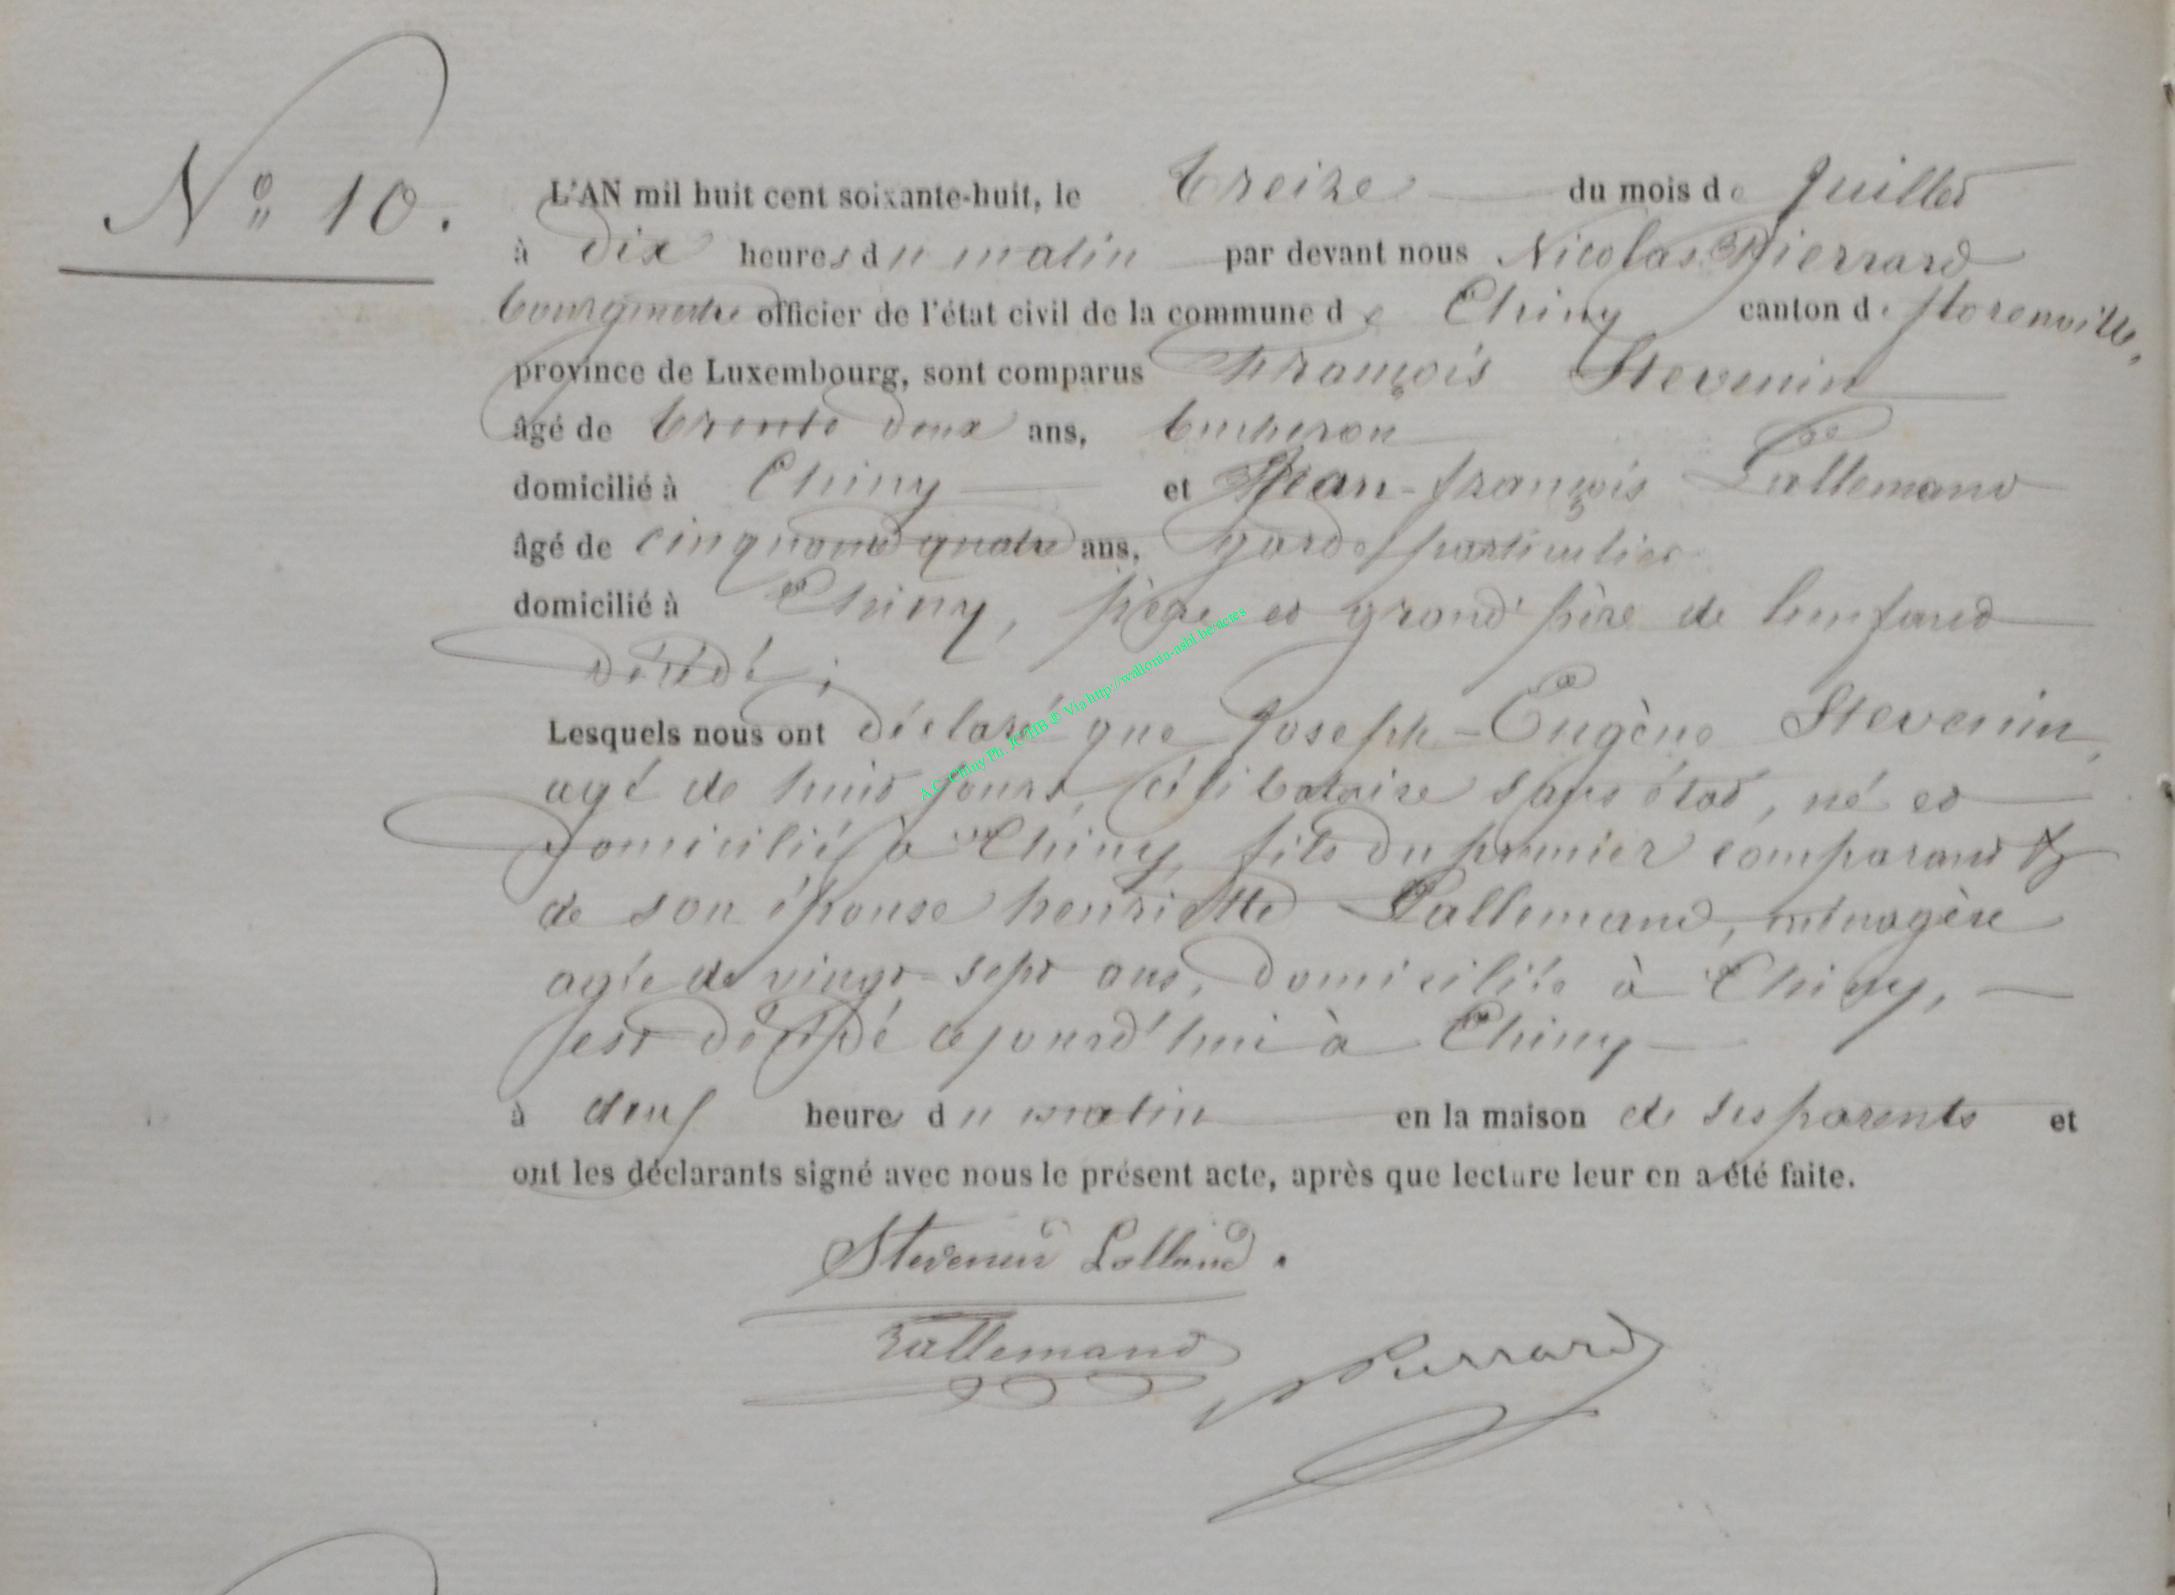 N° 10.
L'AN mil huit cent soixante-huit, le treize du mois de Juillet
à dix heures du matin par devant nous Nicolas Pierrard
bourgmestre officier de l'état civil de la commune de Chiny canton de florenville,
province de Luxembourg, sont comparus François Stevenin
âgé de trente deux ans, bucheron
domicilié à Chiny et Jean-françois Lallemand
âgé de cinquante quatre ans, garde particulier
domicilié à Chiny, père et grand'père de l'enfant
décédé;
Lesquels nous ont déclaré que Joseph-Eugène Stevenin,
agé de huit jours, célibataire sans état, né et
domicilié à Chiny, fils du premier comparant &
de son épouse henriette Lallemand, ménagère
agée de vingt-sept ans, domiciliée à Chiny,
est décédé cejourd'hui à Chiny
à heures du matin en la maison de ses parents et
ont les déclarants signé avec nous le présent acte, après que lecture leur en a été faite.
Stevenin
Lallemand Pierrard
A.C. Chiny Ph. JC HB © Via http://wallonia-asbl.be/actes